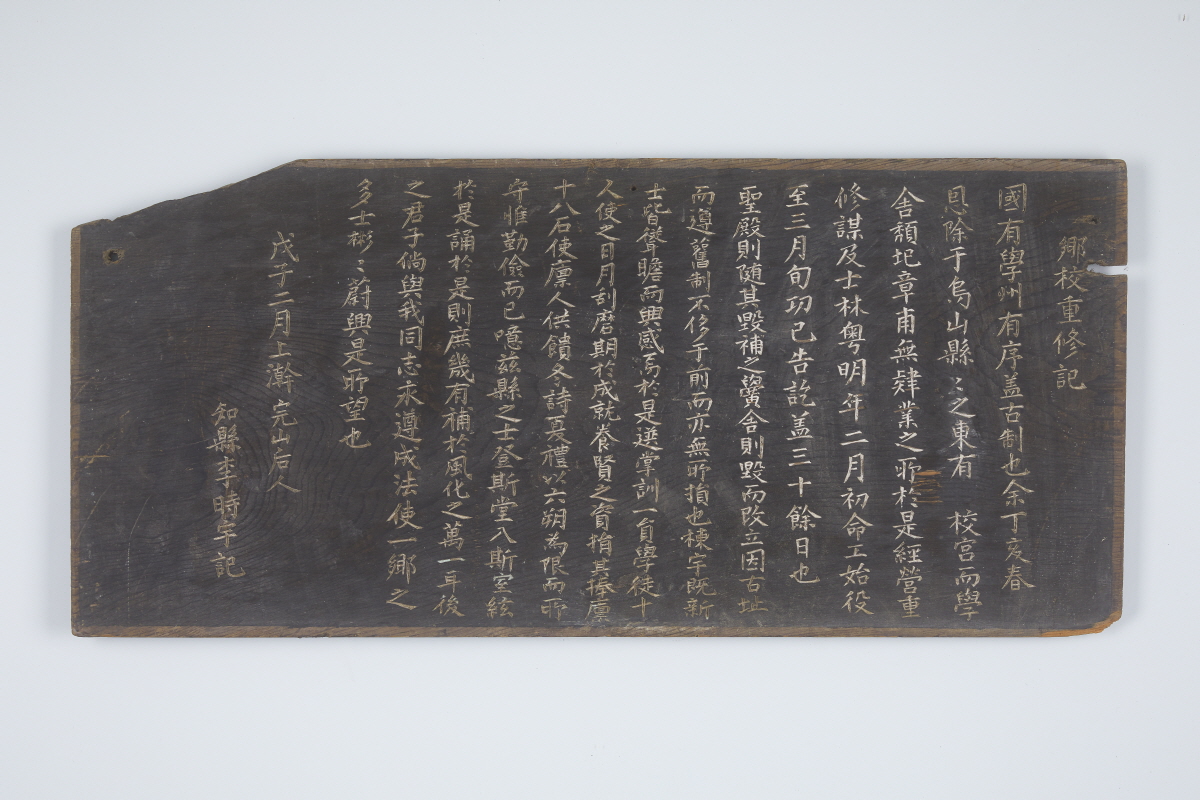 鄕校重修記
國有學州有序盖古制也余丁亥春
恩除于烏山縣〻之東有 校宮而學
舍頹圮章甫無肄業之所於是經營重
修謀及士林粤明年二月初命工始役
至三月旬功已告訖盖三十餘日也
聖殿則随其毀補之黌舍則毀而改立因古址
而遵舊制不侈于前而亦無所損也棟宇既新
士皆聳瞻而興感焉於是選掌訓一員學徒十
人使之日月刮磨期於成就養賢之資捐其捧廩
十八石使廩人供饋冬詩夏禮以六朔為限而所
守惟勤儉而已噫兹縣之士登斯堂入斯室絃
於是誦於是則庶幾有補於風化之萬一耳後
之君子倘與我同志永遵成法使一鄕之
多士彬〻蔚興是所望也
戊子二月上澣 完山后人
知縣李時午記